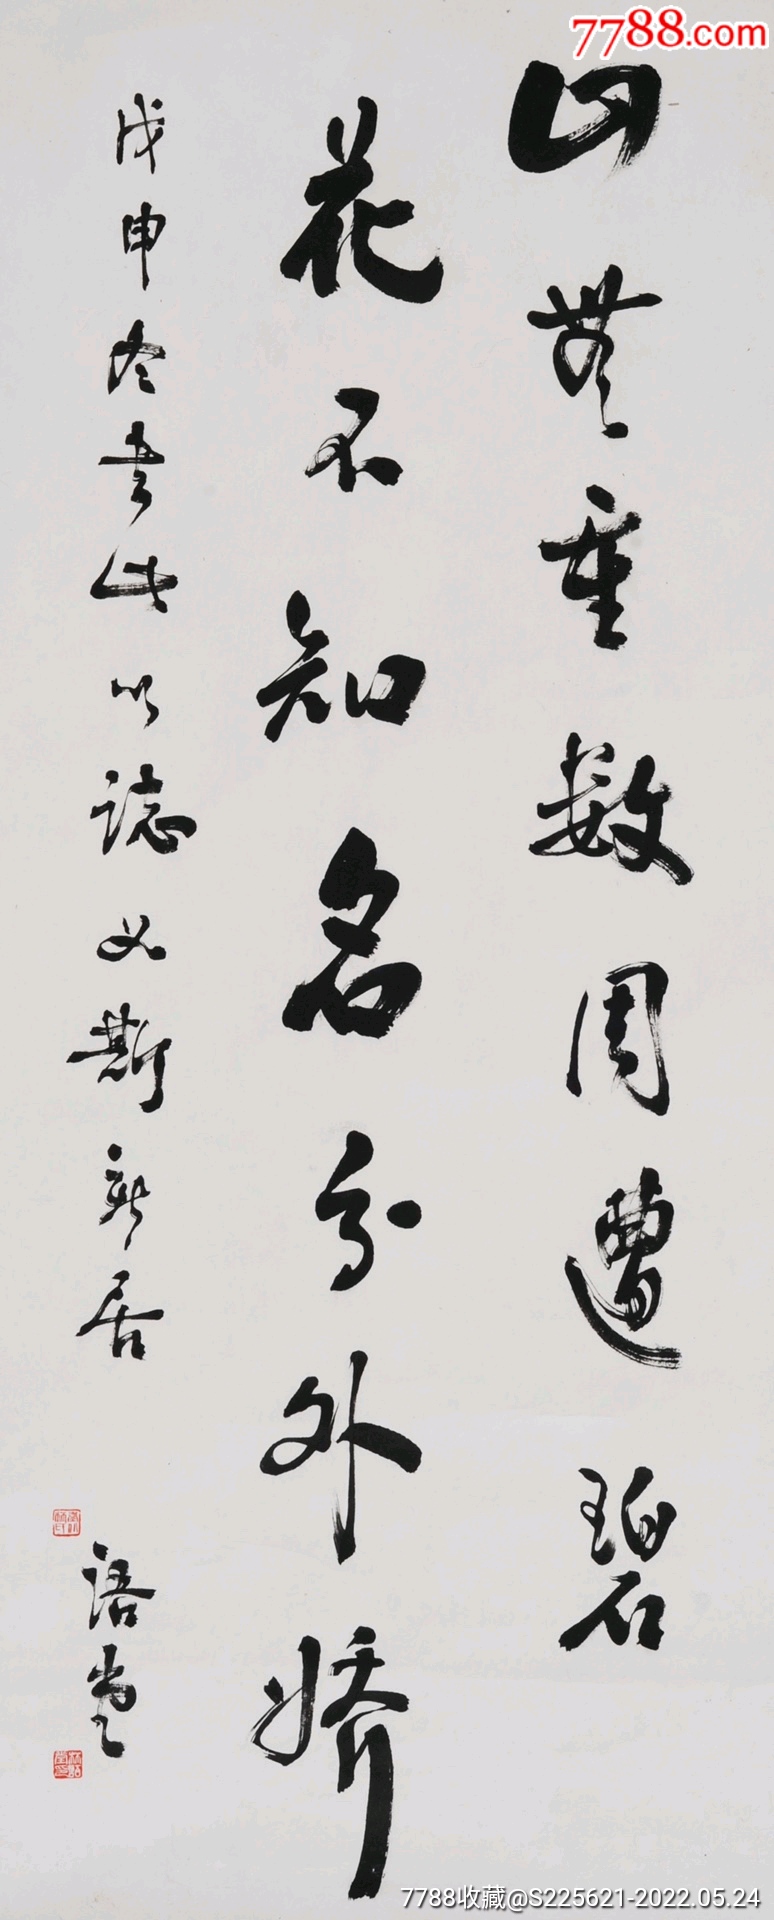 7788.com
山無重數周遭碧
花不知名分外娇
戊申冬書此以誌如斯新居
語堂
7788收藏@S225621-2022.05.24